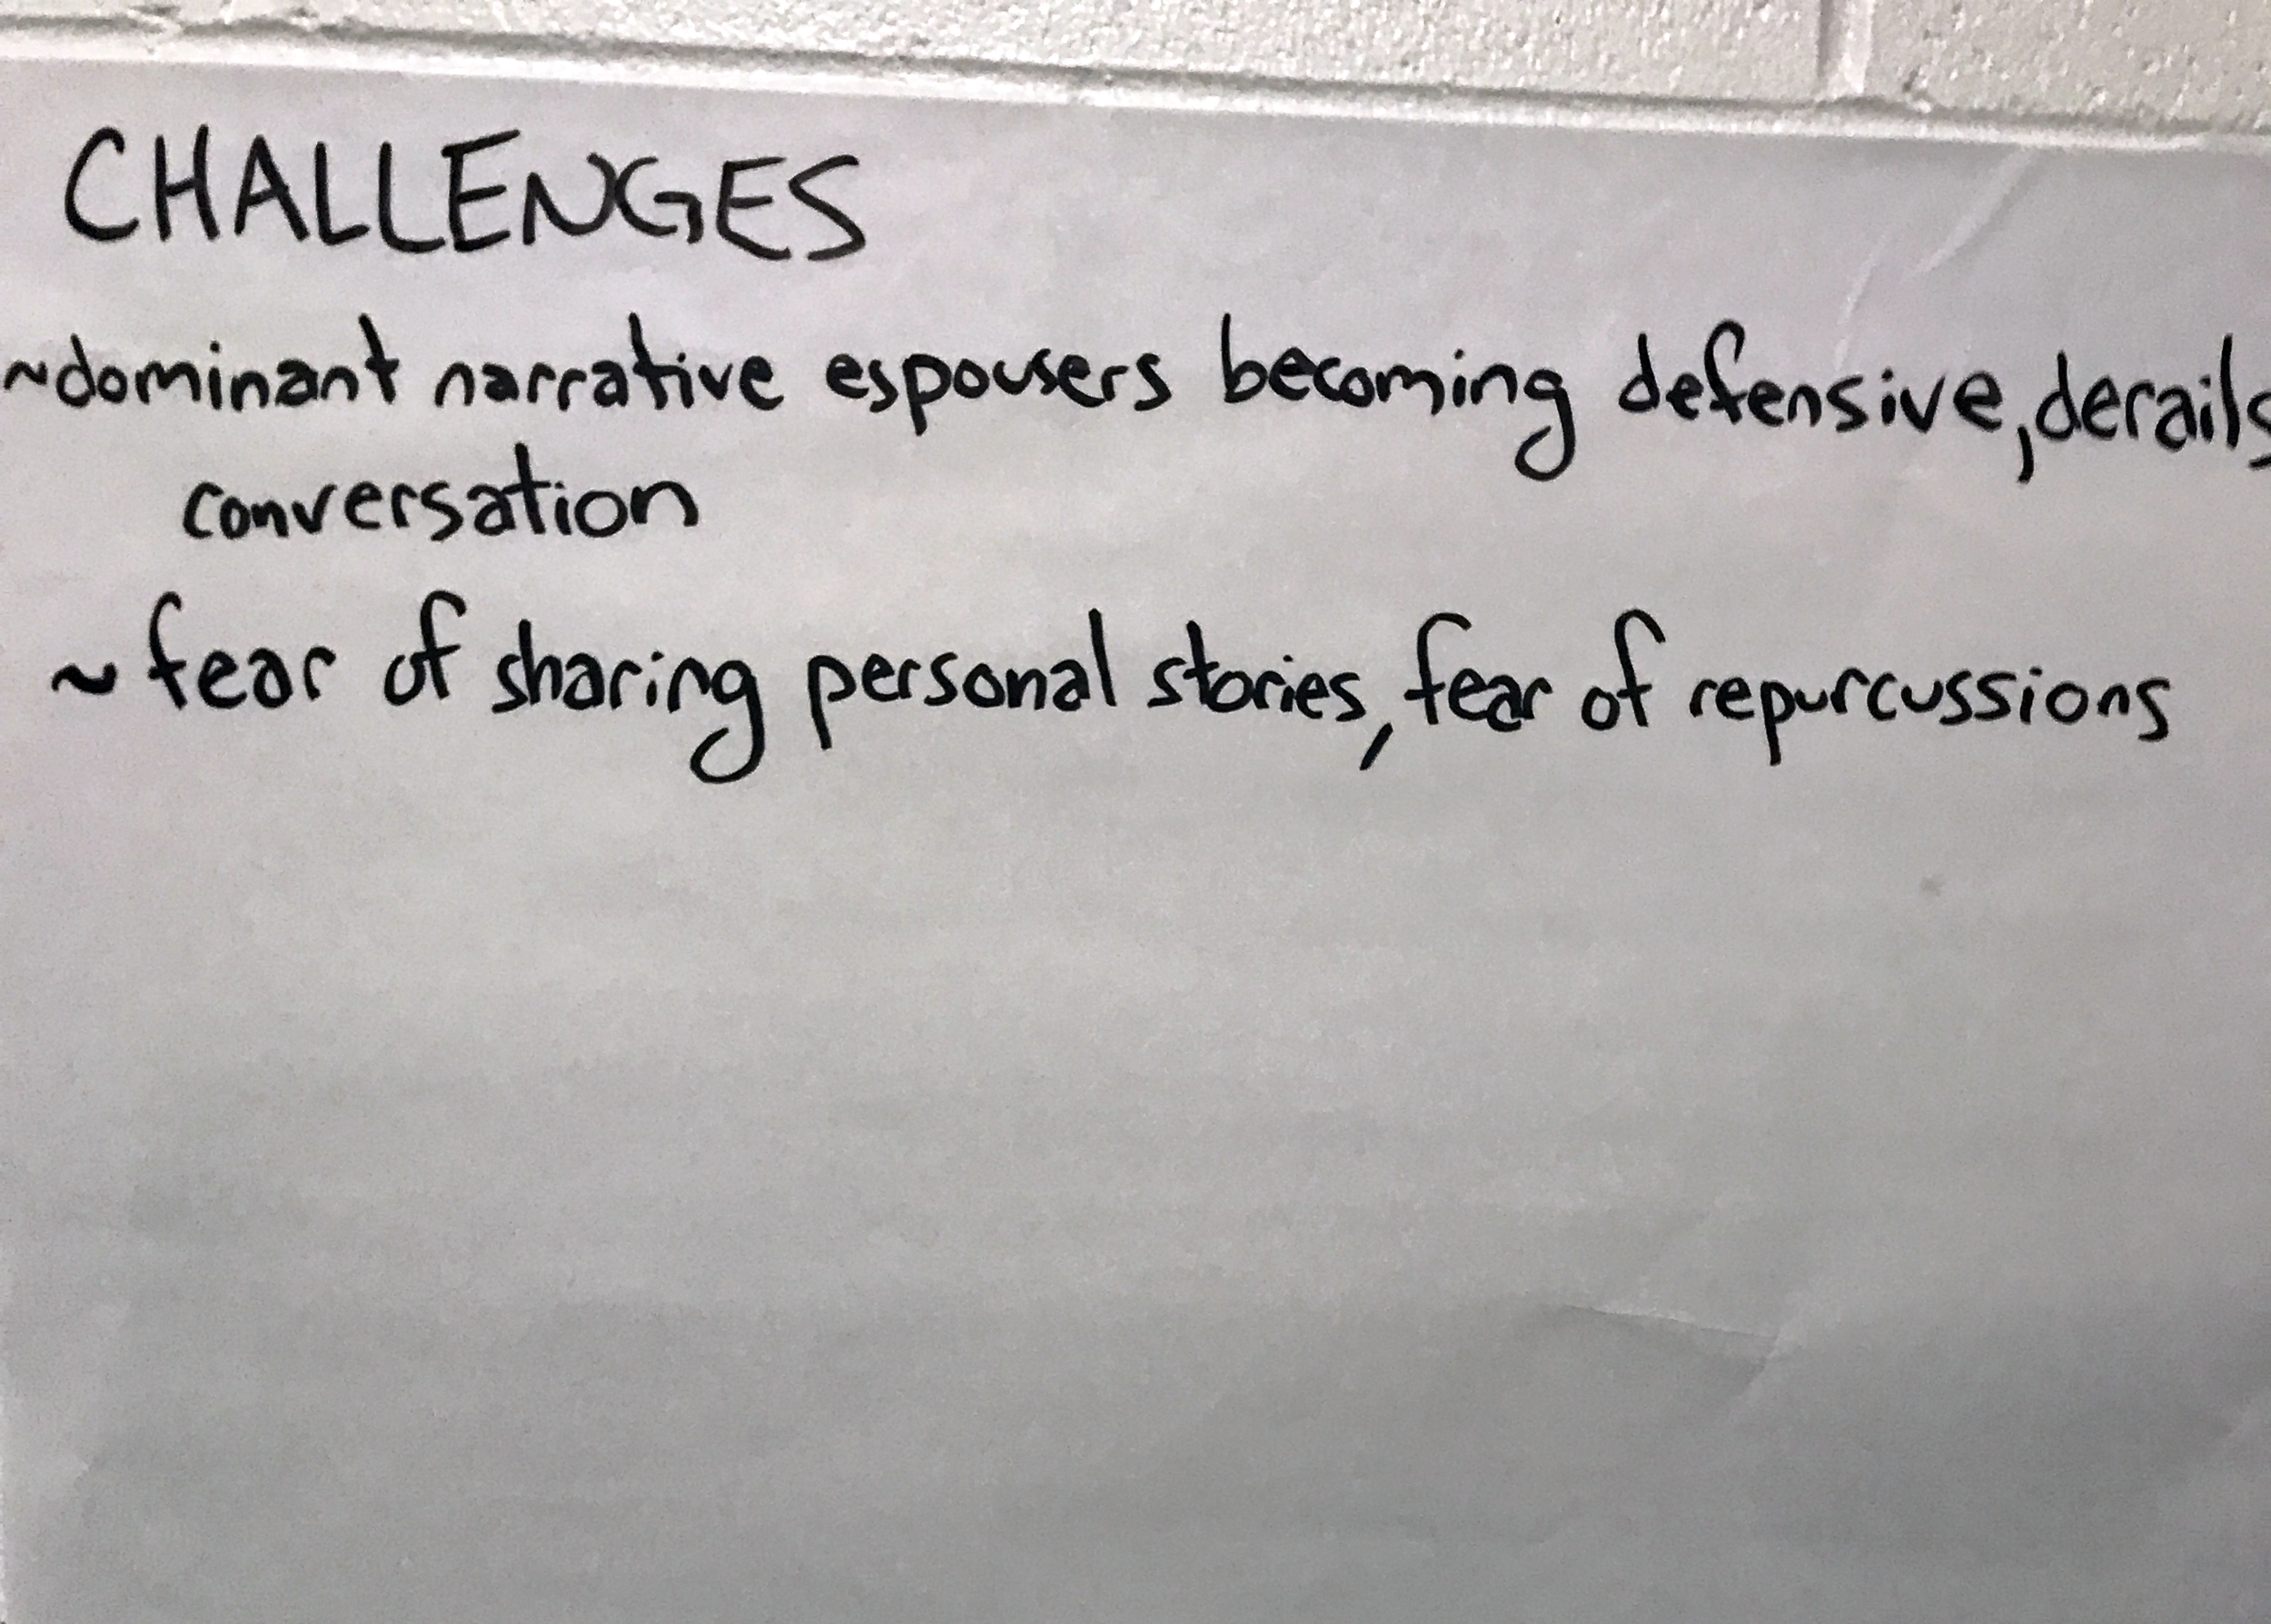 CHALLENGES
~dominant narrative espousers becoming defensive, derails
conversation
~ fear of sharing personal stories, fear of repurcussions